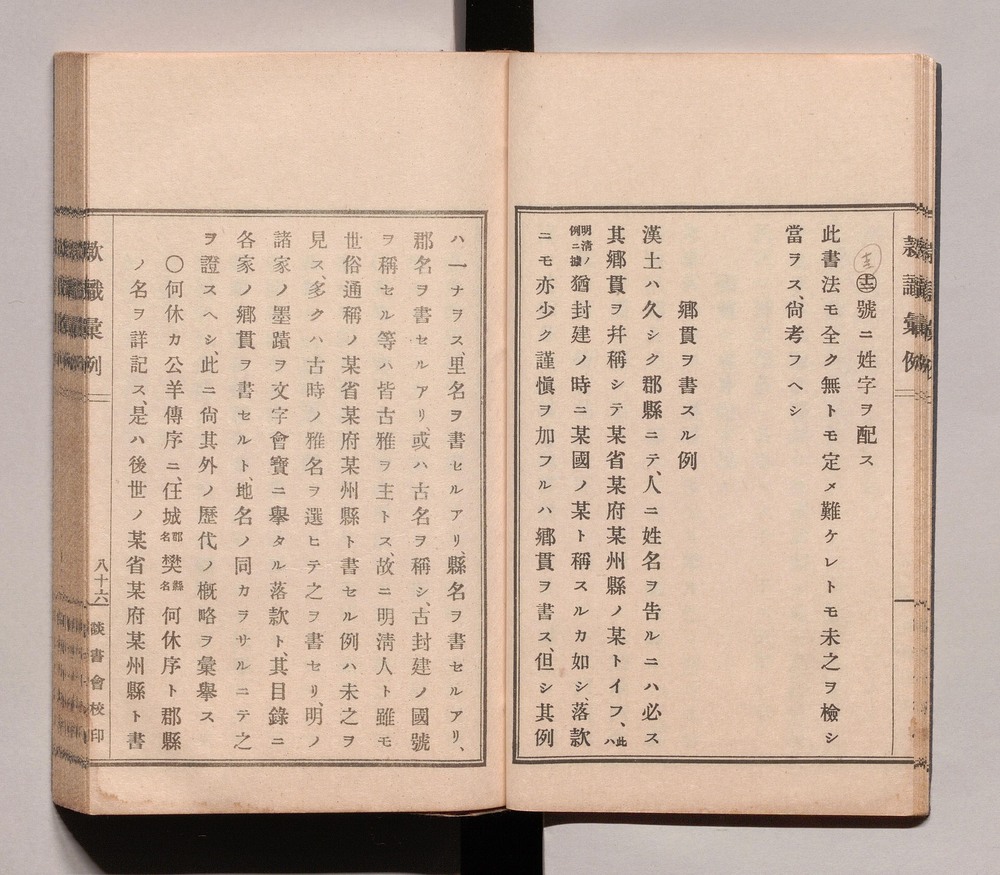 ㊉號ニ姓字ヲ配ス
此書法モ全ク無トモ定メ難ケレトモ未之ヲ檢シ
當ヲス、尙考フヘシ
鄕貫ヲ書スル例
漢土ハ久シク郡縣ニテ、人ニ姓名ヲ告ルニハ必ス
其鄕貫ヲ幷稱シテ某省某府某州縣ノ某トイフ、此ハ
明淸ノ例ニ據猶封建ノ時ニ某國ノ某ト稱スルカ如シ、落款
ニモ亦少ク謹愼ヲ加フルハ鄕貫ヲ書ス、但シ其例
ハ一ナヲス、里名ヲ書セルアリ、縣名ヲ書セルアリ、
郡名ヲ書セルアリ、或ハ古名ヲ稱シ、古封建ノ國號
ヲ稱セル等ハ皆古雅ヲ主トス、故ニ明淸人ト雖モ
世俗通稱ノ某省某府某州縣ト書セル例ハ未之ヲ
見ス、多クハ古時ノ雅名ヲ選ヒテ之ヲ書セリ、明ノ
諸家ノ墨蹟ヲ文字會寶ニ擧タル落款ト、其目錄ニ
各家ノ鄕貫ヲ書セルト、地名ノ同カヲサルニテ之
ヲ證スヘシ、此ニ尙其外ノ歷代ノ槪略ヲ彙擧ス
〇何休カ公羊傳序ニ、任城郡名樊縣名何休序ト郡縣
ノ名ヲ詳記ス、是ハ後世ノ某省某府某州縣ト書
款識彙例
八十六
談書會校印